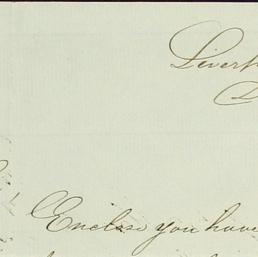 Liverp
D
Enclose you have